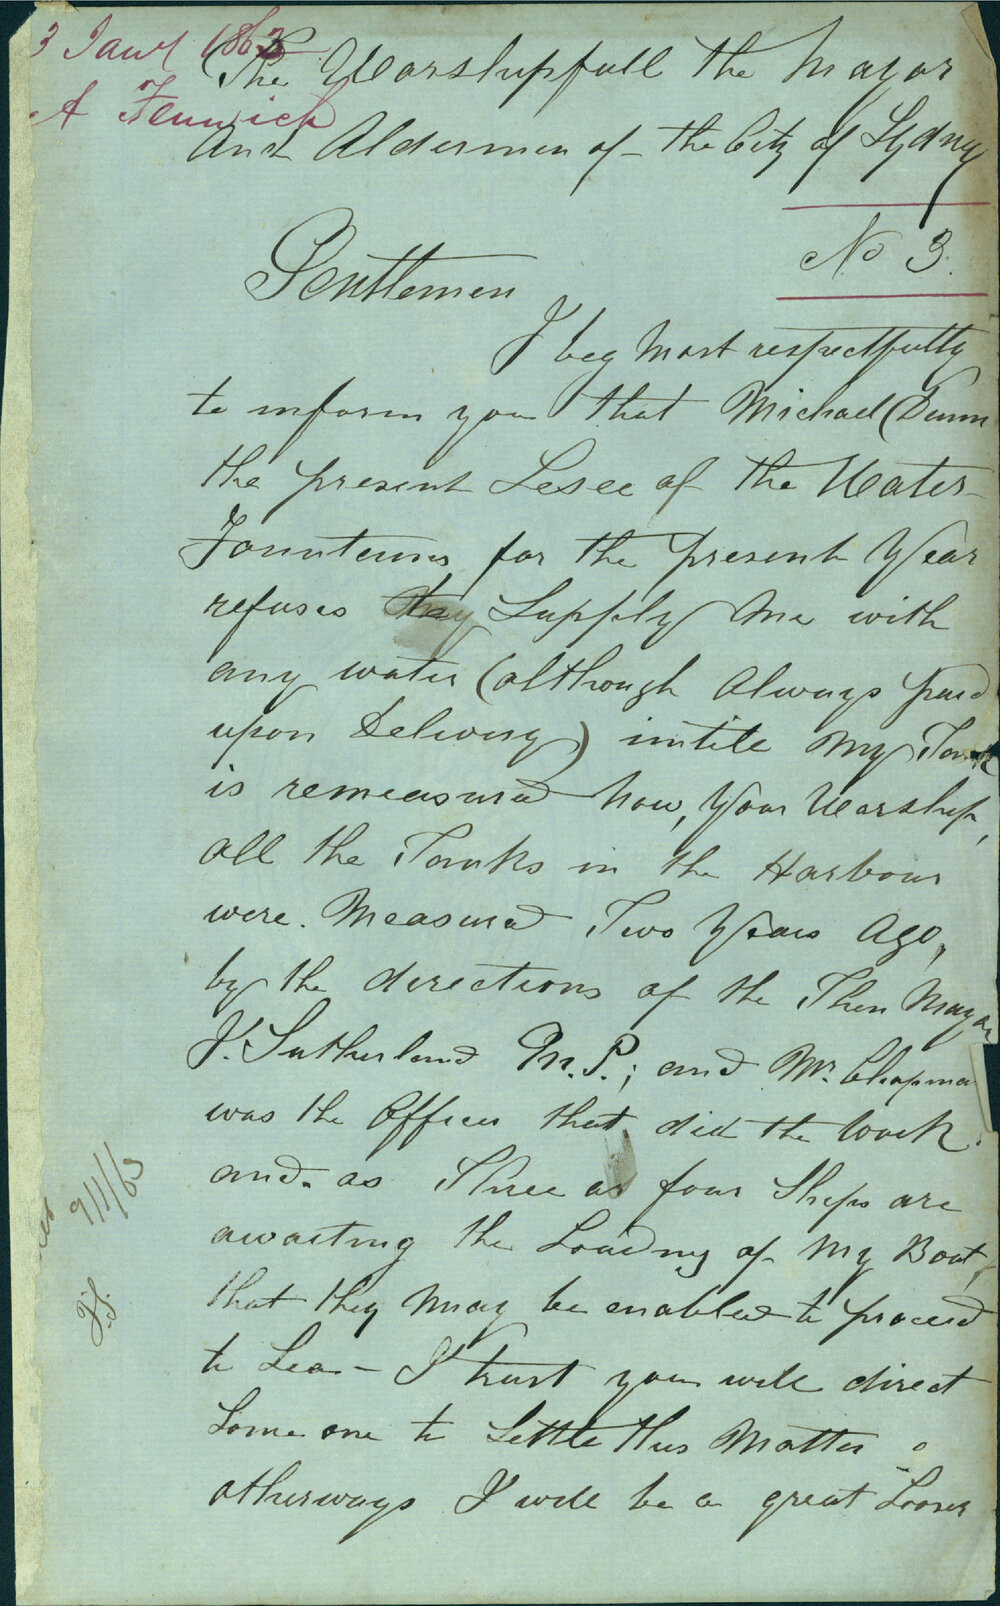 3 Jany 1863
A Fenwick
The Worshipfull the Mayor
And Aldermen of the City of Sydney
No 3.
Gentlemen
I beg Most respectfully
to inform you that Michael Dunn
the present Lesee of the Water
Founteins for the present Year
refuses to Supply Me with
any water (although Always paid
upon Delivery) untile My Tank
is remeasured Now, Your Worship,
all the Tanks in the Harbour
were Measured Two Years Ago,
by the directions of the Then Mayor
J. Sutherland M.P.; and Mr. Chapman
was the Officer that did the work.
and as Three or four Ships are
awaiting the Loading of My Boat,
that they may be enabled to proceed
to Sea - I trust you will direct
Some one to Settle this Matter
otherways I will be a great Looser
9/1/63